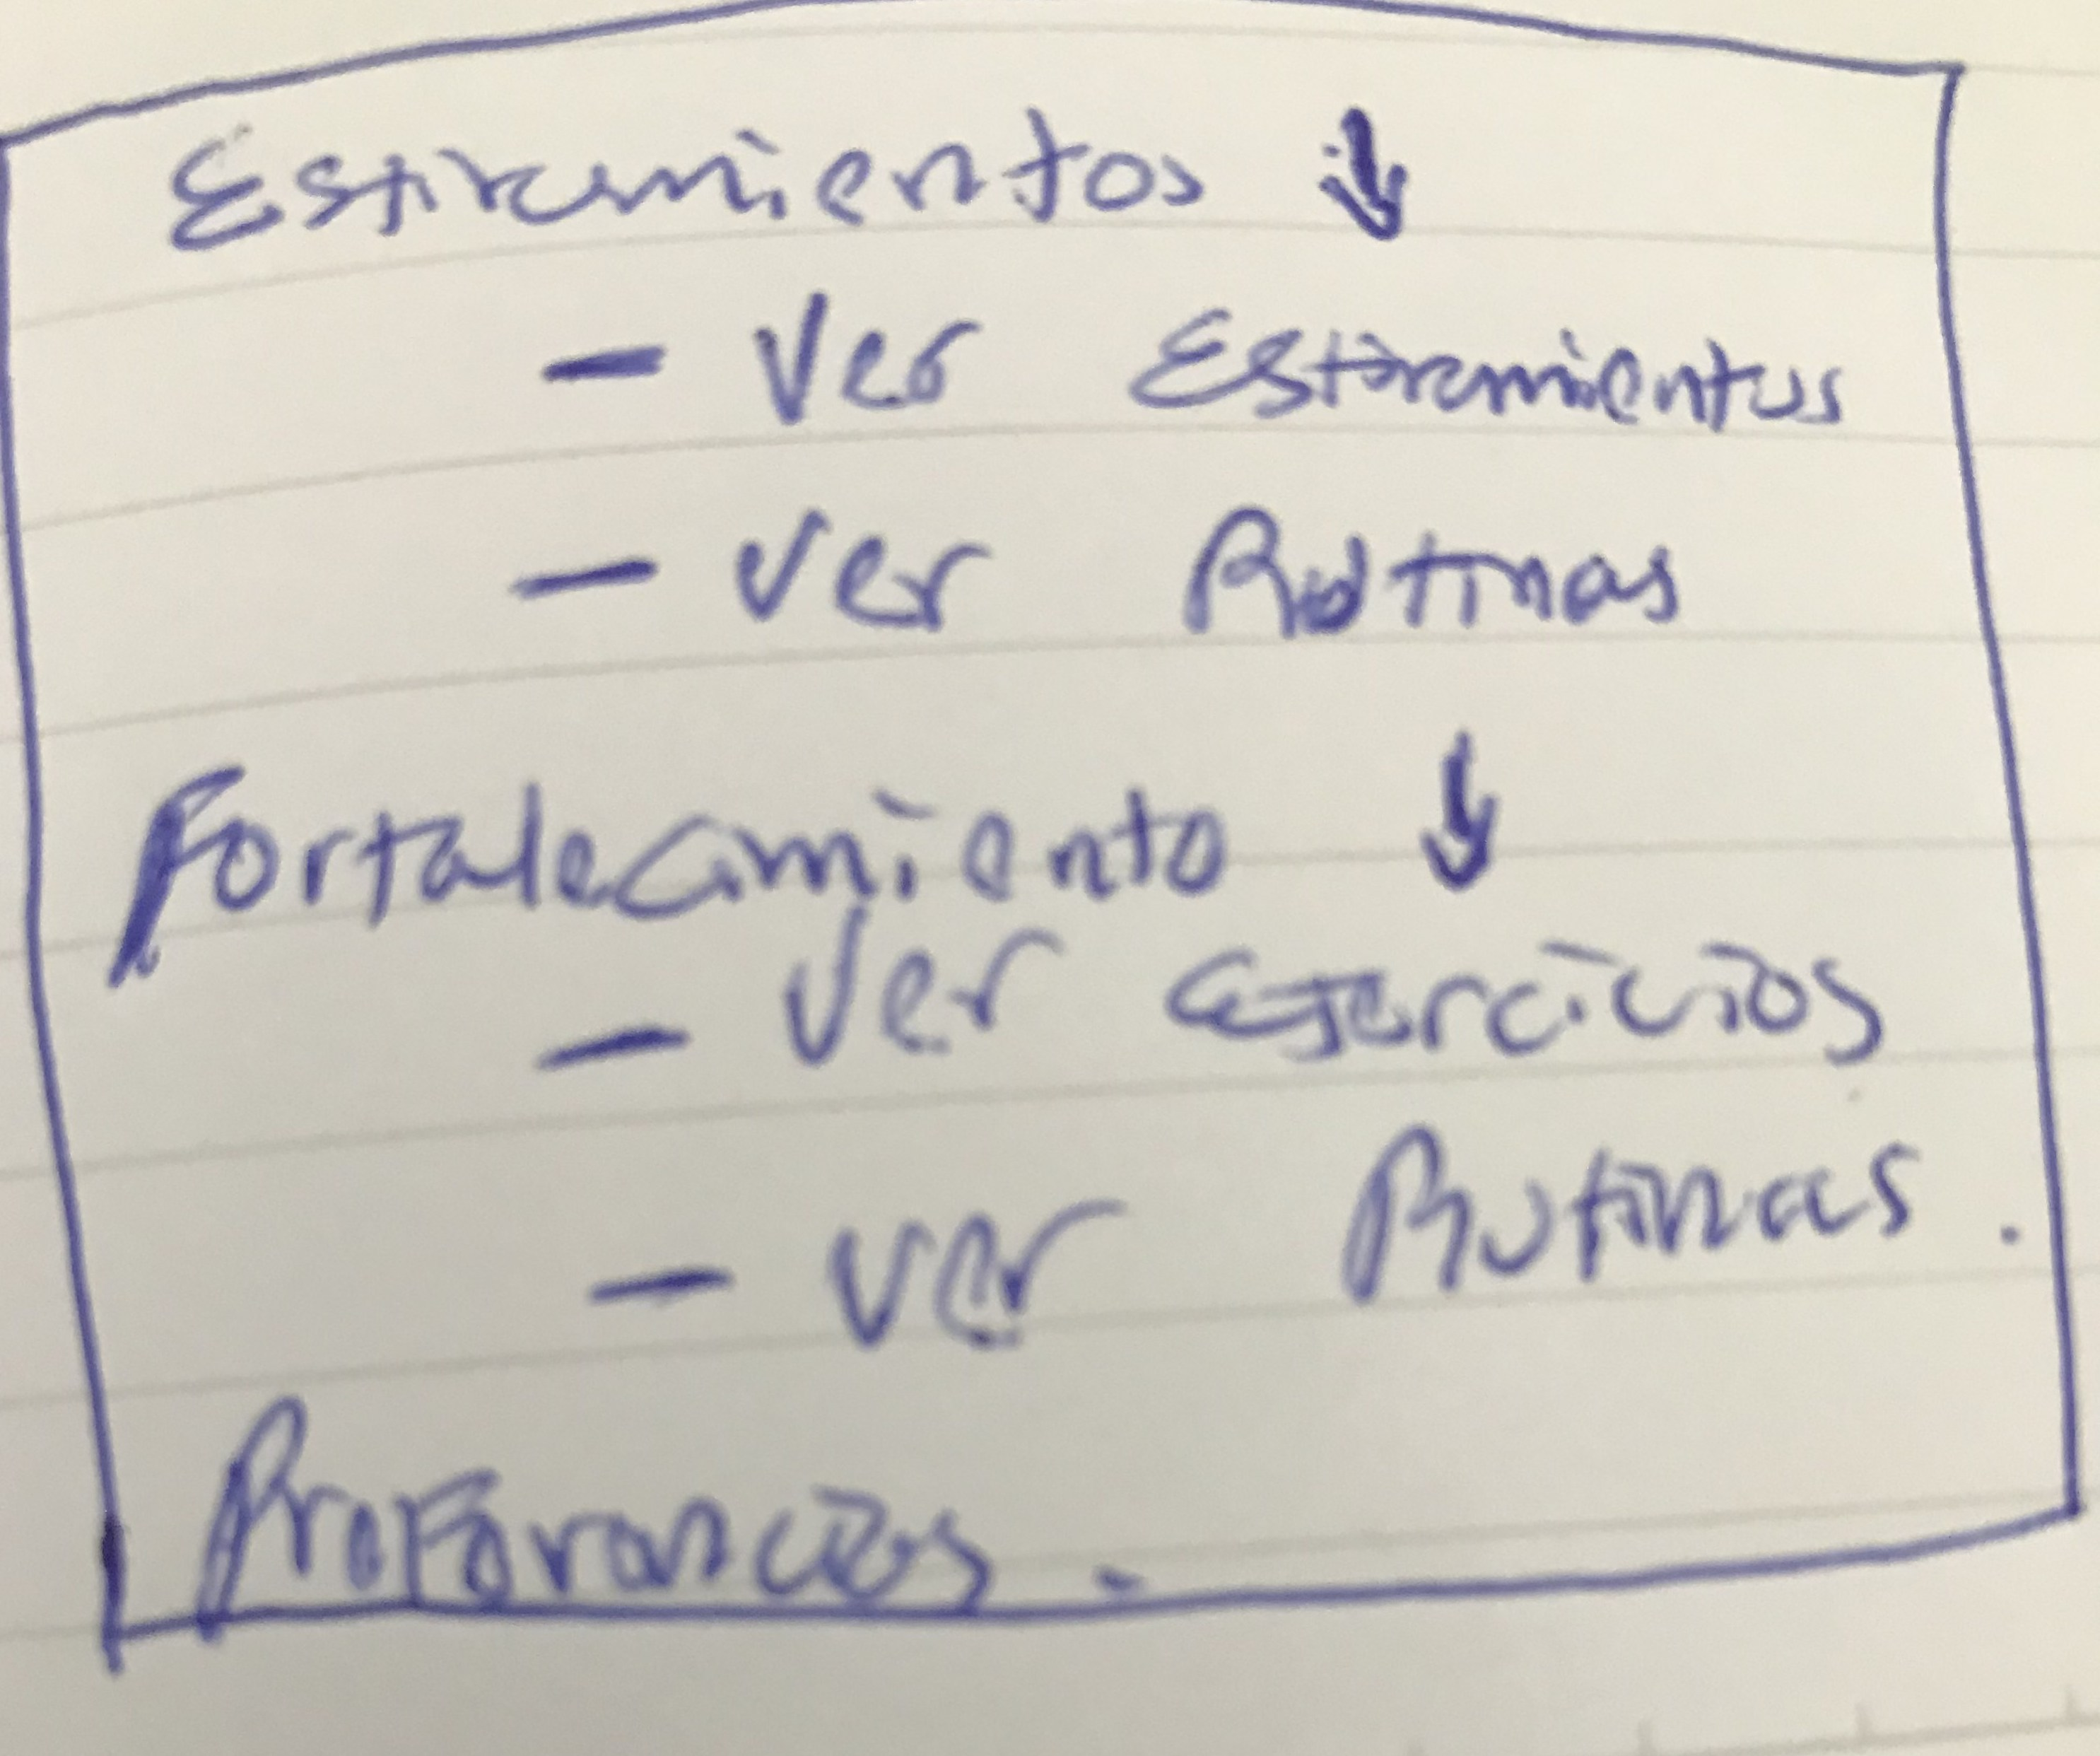 Estiramientos ↓
- Ver Estiramientos
- Ver Rutinas
Fortalecimiento ↓
- Ver Ejercicios
- Ver Rutinas.
Preferencias.